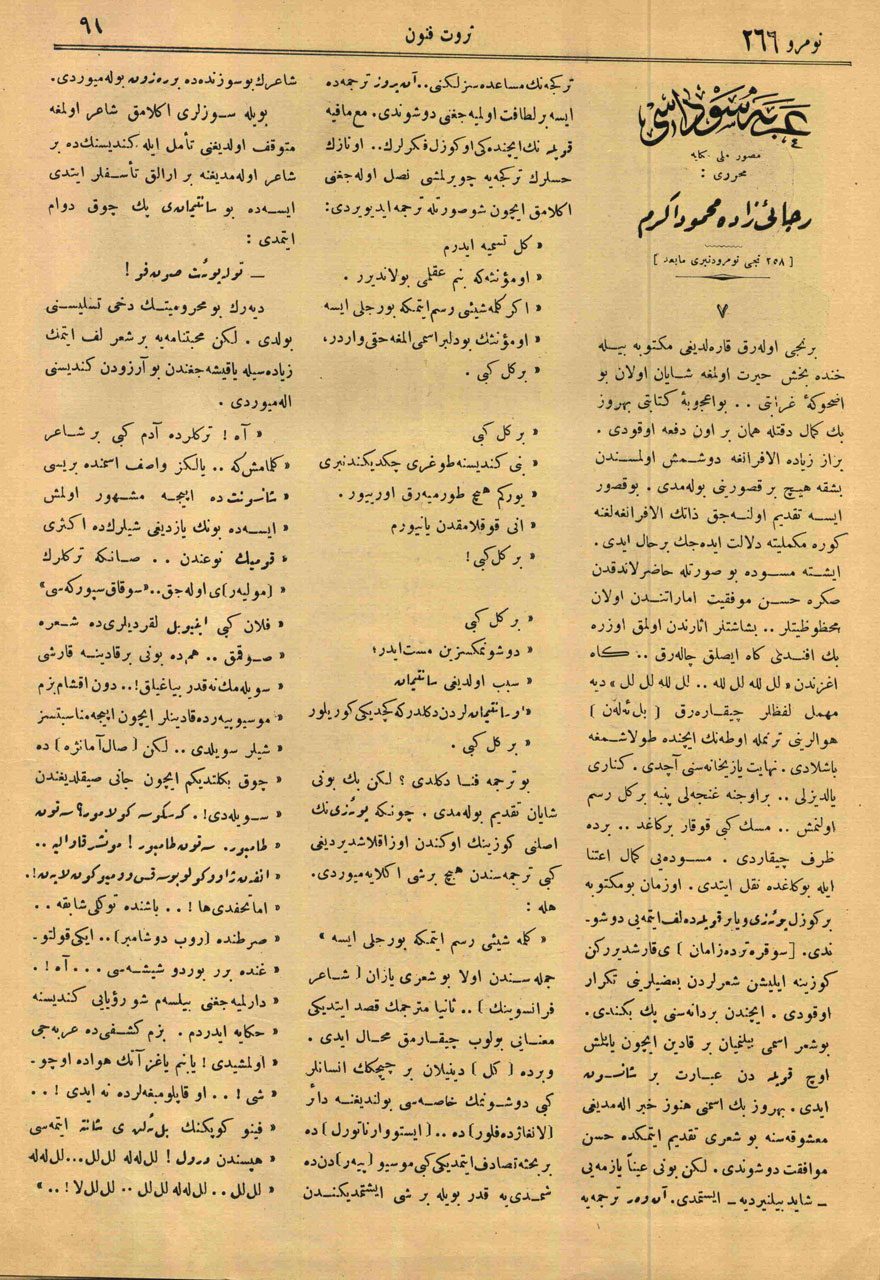 نومرو ٢٦٦
ثروت فنون
٩١
عربه سوداسی
مصور ملی حکایه
محرری :
رجائی زاده محمود اکرم
[ ٢٥٨ نجی نومرودنبری مابعد ]
٧
برنجی اوله‌رق قاره‌لدیغی مکتوبه بیله
خنده بخش حیرت اولمغه شایان اولان بو
اضحوکهٔ غرائبی .. بواعجوبهٔ کتابتی بهروز
بك کمال دقتله همان بر اون دفعه اوقودی .
براز زیاده الافرانغه دوشمش اولمسندن
بشقه هیچ بر قصورینی بوله‌مدی . بوقصور
ایسه تقدیم اولنه‌جق ذاتك الافرانغه‌لغنه
کوره مکملیته دلالت ایده‌جك برحال ایدی .
ایشته مسوده بو صورتله حاضرلاندقدن
صکره حسن موفقیت اماراتندن اولان
محظوظیتلر .. بشاشتلر آثارندن اولمق اوزره
بك افندی کاه ایصلق چاله‌رق .. کاه
اغزندن « لل لله لل لله .. لل لله لل لل » دیه
مهمل لفظلر چیقاره‌رق ( بل ئه‌لن )
هوالرینی ترنمله اوطه‌نك ایچنده طولاشمغه
باشلادی . نهایت یازیخانه‌سنی آچدی . کناری
یالدیزلی .. براوجنه غنجه‌لی پنبه برکل رسم
اولنمش .. مسك کبی قوقار برکاغد .. برده
ظرف چیقاردی . مسوده‌یی کمال اعتنا
ایله بوکاغده نقل ایتدی . اوزمان بومکتوبه
برکوزل بوئزی ویا بر قوپله‌ده لف ایتمه‌یی دوشو-
ندی . [ سوقره‌ترده‌زامان ] ی قارشدیررکن
کوزینه ایلیشن شعرلردن بعضیلرینی تکرار
اوقودی . ایچندن بردانه‌سنی پك بکندی .
بوشعر اسمی بیلنمیان بر قادین ایچون یازلمش
اوچ قوپله دن عبارت بر شانسون
ایدی . بهروز بك اسمنی هنوز خبر اله‌مدیغی
معشوقه‌سنه بو شعری تقدیم ایتمکده حسن
موافقت دوشوندی . لکن بونی عیناً یازمه‌یی
ـ شاید بیلنیردیه ـ ایستمدی . آن ورر ترجمه‌یه
ترکجه‌نك مساعده سزلکنی .. آن پروز ترجمه‌ده
ایسه برلطافت اولمیه‌جغنی دوشوندی . مع مافیه
قوپله نك ایچنده‌کی اوکوزل فکرلرك .. اونازك
حسلرك ترکجه‌یه چویرلمشی نصل اوله‌جغنی
اکلامق ایچون شو صورتله ترجمه ایدیویردی :
« کل تسمیه ایدرم
« اومؤنثه‌که بنم عقلمی بولاندیرر .
« اکر کله شیئی رسم ایتمکه بورجلی ایسه
« اومؤنثك بودلبر اسمی المغه حقی واردر ،
« برکل کبی .
« بر کل کبی
« بنی کندیسنه طوغری چکدیکندنبری
« یورکم هیچ طورمیه‌رق اوریبور .
« انی قوقلامقدن یانیورم
« برکل کبی !
« بر کل کبی
« دوشونمکسزین مست ایدر ؛
« سبب اولدیغی سانتیمان
« او سانتیمان لردن دکلدر که کچدیکی کوریلور
« بر کل کبی .
بو ترجمه فنا دکلدی ؟ لکن بك بونی
شایان تقدیم بوله‌مدی . چونکه بوئزی نك
اصلنی کوزینك اوکندن اوزاقلاشدیردیغی
کبی ترجمه‌سندن هیچ برشی اکلایه‌میوردی .
هله :
« کله شیئی رسم ایتمکه بورجلی ایسه »
جمله سندن اولا بو شعری یازان ( شاعر
فرانسوینك ) .. ثانیا مترجمك قصد ایتدیکی
معنایی بولوب چیقارمق محال ایدی .
وبرده ( کل ) دینیلان بر چیچکك انسانلر
کبی دوشونمك خاصه‌سی بولندیغنه دائر
( لانغاژده‌فلور ) ده .. ( ایستووارناتورل ) ده
بر بحثه تصادف ایتمدیکی کبی موسیو ( پیه‌ر ) دن‌ده
شمدی‌یه قدر بویله بر شی ایشتمدیکندن
شاعرك بوسوزنده‌ده بر ره‌زون بوله‌میوردی .
بویله سوزلری اکلامق شاعر اولمغه
متوقف اولدیغنی تأمل ایله کندیسنك‌ده بر
شاعر اوله‌مدیغنه بر ارالق تأسفلر ایتدی
ایسه‌ده بو سانتیمان‌ی پك چوق دوام
ایتمدی :
ـ توله‌پوئت صون‌فو !
دیه‌رك بو محرومیتك دخی تسلیسنی
بولدی . لکن محبتنامه‌یه بر شعر لف ایتمك
زیاده‌سیله یاقیشه‌جغندن بو آرزودن کندیسنی
اله‌میوردی .
« آه ! ترکلرده آدم کبی بر شاعر
« کلمامش‌که .. یالکز واصف اسمنده بریسی
« شانسونت ده اییجه مشهور اولمش
« ایسه‌ده بونك یازدیغی شیلرك‌ده اکثری
« قومیك نوعندن .. صانکه ترکلرك
« ( مولیه‌ر ) ی اوله‌جق .. « سوقاق سپورکه‌سی »
« فلان کبی اینیوبل لقردیلری‌ده شعره
« صوقمق .. هم‌ده بونی برقادینه قارشی
« سویله‌مك نه‌قدر بیاغیلق ! .. دون اقشام بزم
« موسیو پیه‌رده قادینلر ایچون اییجه مناسبتسز
« شیلر سویلدی .. لکن ( صال آمانژه ) ده
« چوق بکلتدیکم ایچون جانی صیقلدیغندن
« سویله‌دی ! .
« امانحفدی‌ها ! .. باشنده توکلی شابقه ..
« صرطنده ( روب دوشامبر ) .. ایکی قولتو-
« غنده برر بوردو شیشه‌سی ... آه ! .
« دارلمیه‌جغنی بیلسه‌م شو رؤیایی کندیسنه
« حکایه ایدردم . بزم کشفی‌ده عربه‌جی
« اولمشیدی ! یابنم یاغز آتك هواده اوچو-
« شی ! .. او قاپلومبغه‌لرده نه ایدی ! ..
« فینو کوپکنك بل‌ئه‌لن ی شانته ایتمه‌سی
« هپسندن ورول ! لل‌له‌له لل‌لل ... لل‌له‌له
« لل‌لل .. لل‌له‌له لل‌لل .. لل‌لل‌لا ! .. »